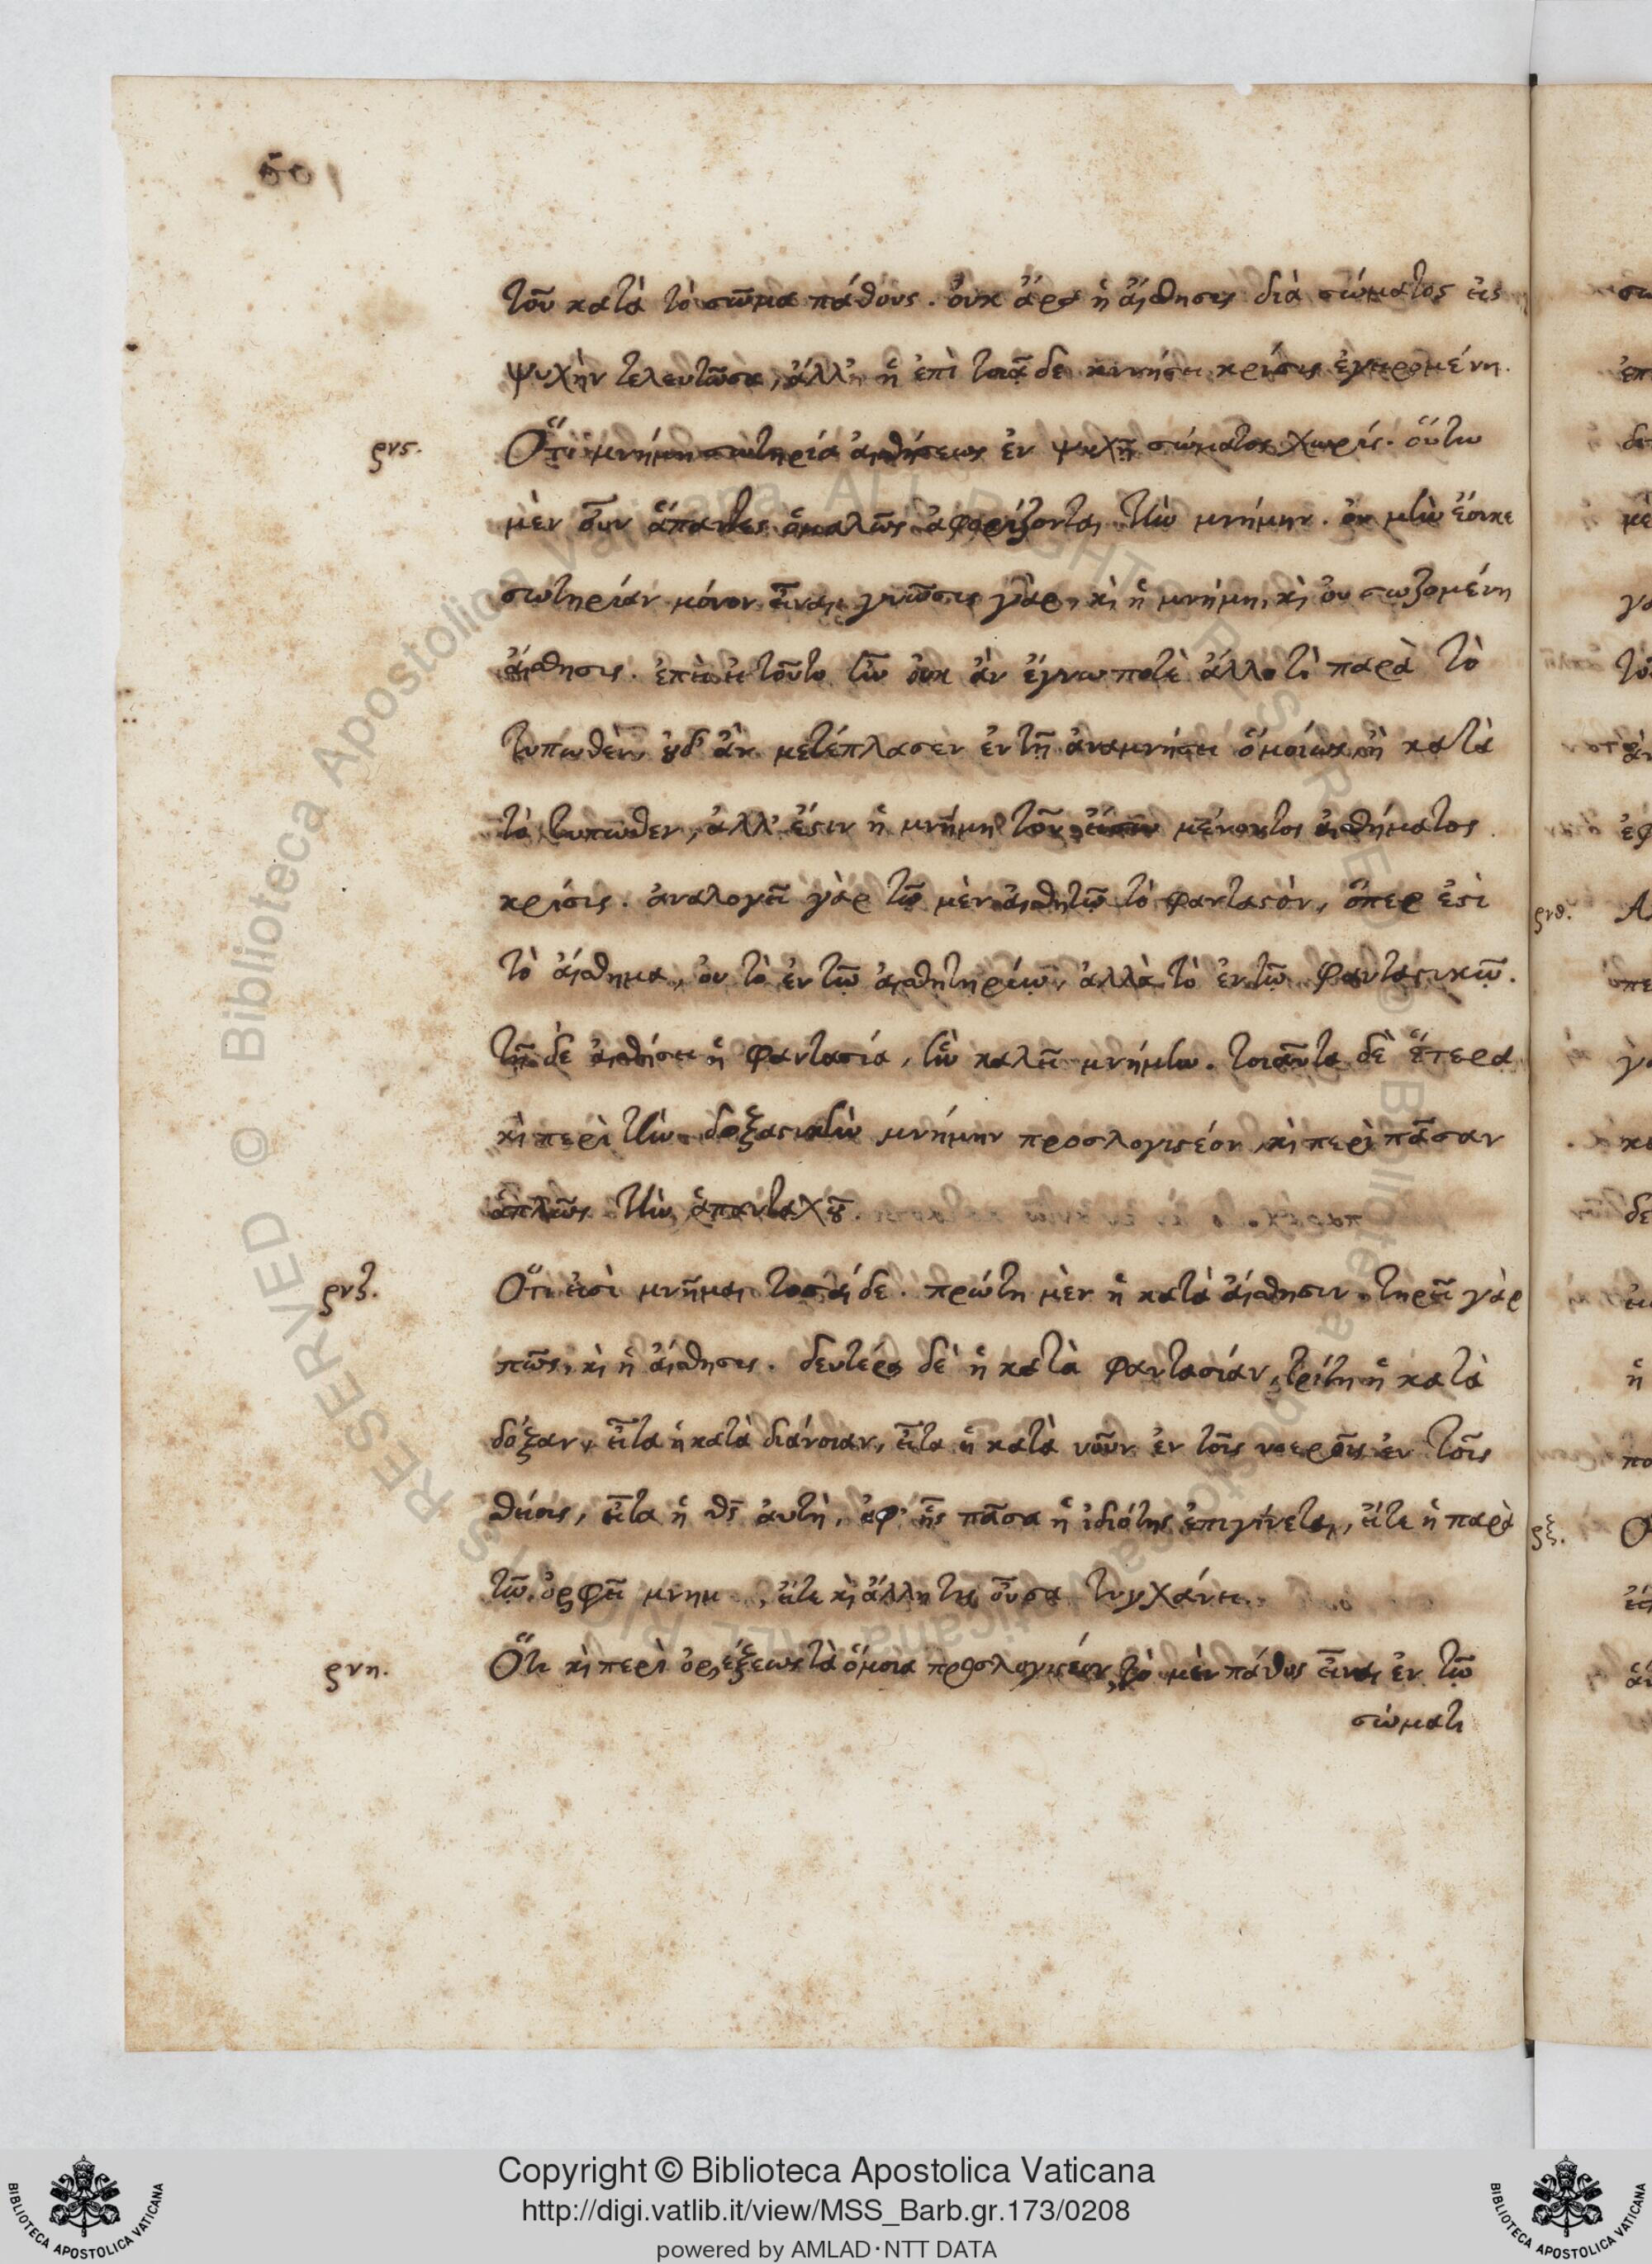 501
τοῦ κατὰ τὸ σῶμα πάθους. ὀυκ ἄρα ἡ ἄισθησις διὰ σώματος εἰς
ψυχὴν τελευτῶσα, ἀλλ' ἡ ἐπὶ τοιᾷδε κινήσει κρίσις ἐγειρομένη.
ρνϛ. Ὅτι μνήμη σωτηρία ἀισθήσεως ἐν ψυχῇ σώματος χωρίς. ὅυτω
μὲν ὀῦν ἅπαντες ὁμαλῶς ἀφορίζονται τὴν μνήμην. ὀυ μὴν ἔοικε
σωτηρίαν μόνον εἶναι, γνῶσις γὰρ, κὶ ἡ μνήμη, κὶ ὀυ σωζομένη
ἄισθησις. ἐπεὶ εἰ τοῦτο ἦν ὀυκ ἀν ἔγνω ποτὲ ἄλλο τὶ παρὰ τὸ
τυπωθὲν, ȣδ' ἂν μετέπλασεν ἐν τῇ ἀναμνήσει ὁμοίως ἢ κατὰ
τὸ τυπωθεν, ἀλλ' ἔϛιν ἡ μνήμη τοῦ μένοντος ἀισθήματος
κρίσις. ἀναλογεῖ γὰρ τῷ μὲν ἀισθητῷ τὸ φανταϛὸν, ὅπερ ἐϛὶ
τὸ ἄισθημα, ὀυ τὸ ἐν τῷ ἀισθητηρίῳ, ἀλλὰ τὸ ἐν τῷ φανταϛικῷ.
τῇ δὲ ἀισθήσει ἡ φαντασία, ἣν καλεῖ μνήμην. τοιαῦτα δὲ ἕτερα
κὶ περὶ τὴν δοξαϛικὴν μνήμην προσλογιϛέον, κὶ περὶ πᾶσαν
ἁπλῶς τὴν ἁπανταχȣ͂.
ρνζ. Ὅτι εἰσὶ μνῆμαι τοσαίδε. πρώτη μὲν ἡ κατὰ ἄισθησιν. τηρεῖ γὰρ
πῶς, κὶ ἡ ἄισθησις. δευτέρα δὲ ἡ κατὰ φαντασίαν, τρίτη ἡ κατὰ
δόξαν, εἶτα ἡ κατὰ διάνοιαν, εἶτα ἡ κατὰ νοῦν ἐν τοῖς νοεροῖς ἐν τοῖς
θείοις, εἶτα ἡ θς ἀυτὴ, ἀφ' ἧς πᾶσα ἡ ἰδιότης ἐπιγίνεται, εἴτε ἡ παρὰ
τῷ ὀρφεῖ μνημ , εἴτε κὶ ἄλλη τις ὀῦσα τυγχάνει.
ρνη. Ὅτι κὶ περὶ ὀρέξεως τὰ ὅμοια προσλογιϛέον, τὸ μὲν πάθος εἶναι ἐν τῷ
σώματι
Copyright © Biblioteca Apostolica Vaticana
http://digi.vatlib.it/view/MSS_Barb.gr.173/0208
powered by AMLAD·NTT DATA